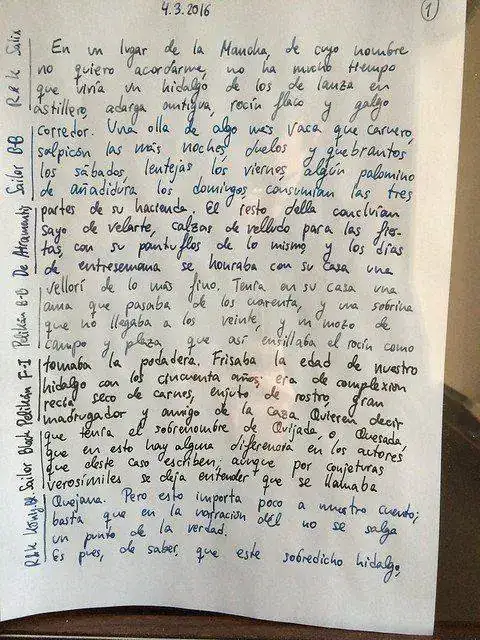 4.3.2016
1
R & K Salix
En un lugar de la Mancha, de cuyo nombre
no quiero acordarme, no ha mucho tiempo
que vivía un hidalgo de los de lanza en
astillero, adarga antigua, rocín flaco y galgo
Sailor B-B
corredor. Una olla de algo más vaca que carnero,
salpicón las más noches, duelos y quebrantos
los sábados, lentejas los viernes, algún palomino
de añadidura los domingos, consumían las tres
De Atramentis
partes de su hacienda. El resto della concluían
sayo de velarte, calzas de velludo para las fies-
tas, con su pantuflos de lo mismo, y los días
de entresemana se honraba con su casa una
Pelikán B-B
vellorí de lo más fino. Tenía en su casa una
ama que pasaba de los cuarenta, y una sobrina
que no llegaba a los veinte, y un mozo de
campo y plaza, que así ensillaba el rocín como
Pelikán F-I
tomaba la podadera. Frisaba la edad de nuestro
hidalgo con los cincuenta años; era de complexión
recia, seco de carnes, enjuto de rostro, gran
madrugador y amigo de la caza. Quieren decir
Sailor Black
que tenía el sobrenombre de Quijada, o Quesada,
que en esto hay alguna diferencia en los autores
que deste caso escriben; aunque por conjeturas
verosímiles se deja entender que se llamaba
R&K
Quejana. Pero esto importa poco a nuestro cuento;
basta que en la narración dél no se salga
un punto de la verdad.
Es pues, de saber, que este sobredicho hidalgo,